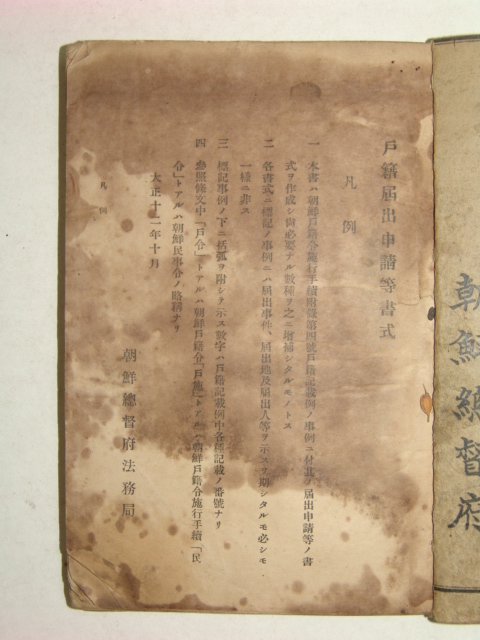 朝鮮總督府
戸籍届出申請等書式
凡例
一 本書ハ朝鮮戸籍令施行手續附錄第四號戸籍記載例ノ事例ニ付其ノ届出申請等ノ書
式ヲ作成シ尙必要ナル數種ヲ之ニ增補シタルモノトス
二 各書式ニ標記ノ事例ニハ届出事件、届出地及届出人等ヲ示スヲ期シタルモ必シモ
一樣ニ非ス
三 標記事例ノ下ニ括弧ヲ附シテ示ス數字ハ戸籍記載例中各種記載ノ番號ナリ
四 參照條文中「戸令」トアルハ朝鮮戸籍令「戸施」トアルハ朝鮮戸籍令施行手續「民
令」トアルハ朝鮮民事令ノ略稱ナリ
大正十二年十月
朝鮮總督府法務局
凡例